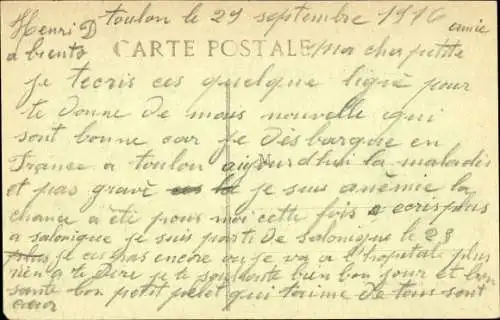 Henri D toulon le 29 septembre 1916
a biento CARTE POSTALE Mon cher petite amie
je tecris ces quelque ligne pour
te donne de mais nouvelle qui
sont bonne car je dèsbarque en
France a toulon aujourd'hui la maladis
et pas gravè je suis anèmie la
chance a ètè pour moi cette fois ecris plus
a salonique je suis parti de salonique le 23
je ces pas encore ou je va a l'hopital plus
rien a te Dire je te souhaite bien bon jour et bon
sante bon petit petet qui t'aime de tous sont
cœur